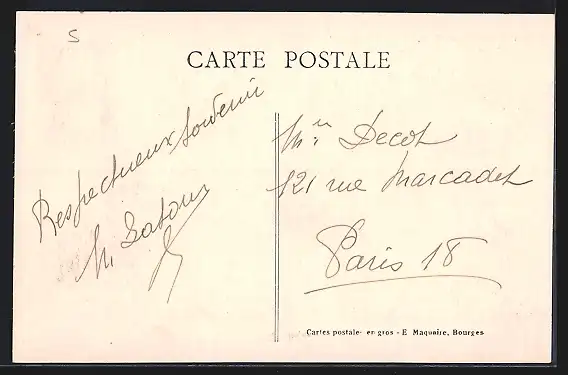 5
CARTE POSTALE
Respectueux souvenir
M.
Mr Decot
121 rue Marcadet
Paris 18
Cartes postales en gros - E Maquaire, Bourges